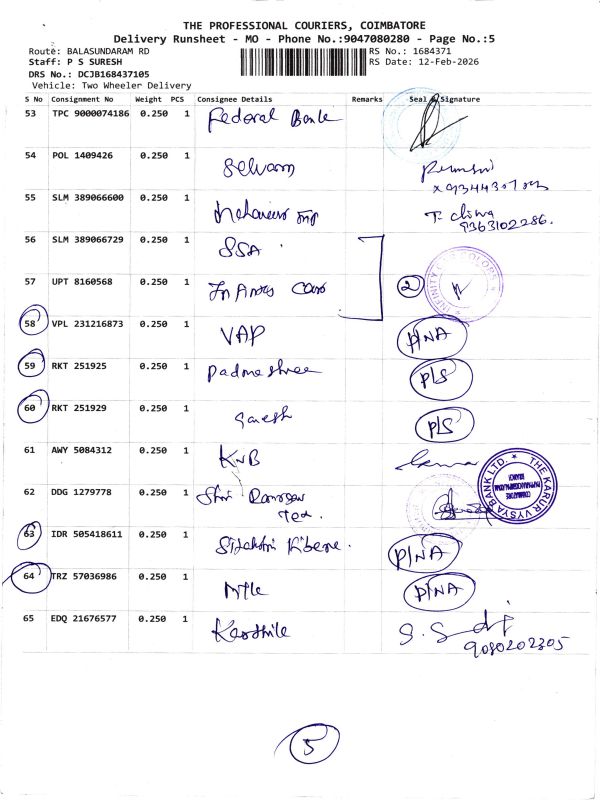 THE PROFESSIONAL COURIERS, COIMBATORE
Delivery Runsheet - MO - Phone No.:9047080280 - Page No.:5
Route: BALASUNDARAM RD RS No.: 1684371
Staff: P S SURESH RS Date: 12-Feb-2026
DRS No.: DCJB168437105
Vehicle: Two Wheeler Delivery
S No Consignment No Weight PCS Consignee Details Remarks Seal & Signature
53 TPC 9000074186 0.250 1 Federal Bank
54 POL 1409426 0.250 1 Selvam
55 SLM 389066600 0.250 1 T. Chima
9363102286.
56 SLM 389066729 0.250 1 SSA
57 UPT 8160568 0.250 1 2 INFINITY COLORS
58 VPL 231216873 0.250 1 VAP P/NA
59 RKT 251925 0.250 1 Padmashree P/S
60 RKT 251929 0.250 1 Ganesh P/S
61 AWY 5084312 0.250 1 KVB THE KARUR VYSYA BANK LTD. COIMBATORE BRANCH
62 DDG 1279778 0.250 1 Shri
63 IDR 505418611 0.250 1 P/NA
64 TRZ 57036986 0.250 1 P/NA
65 EDQ 21676577 0.250 1
9080202305
5